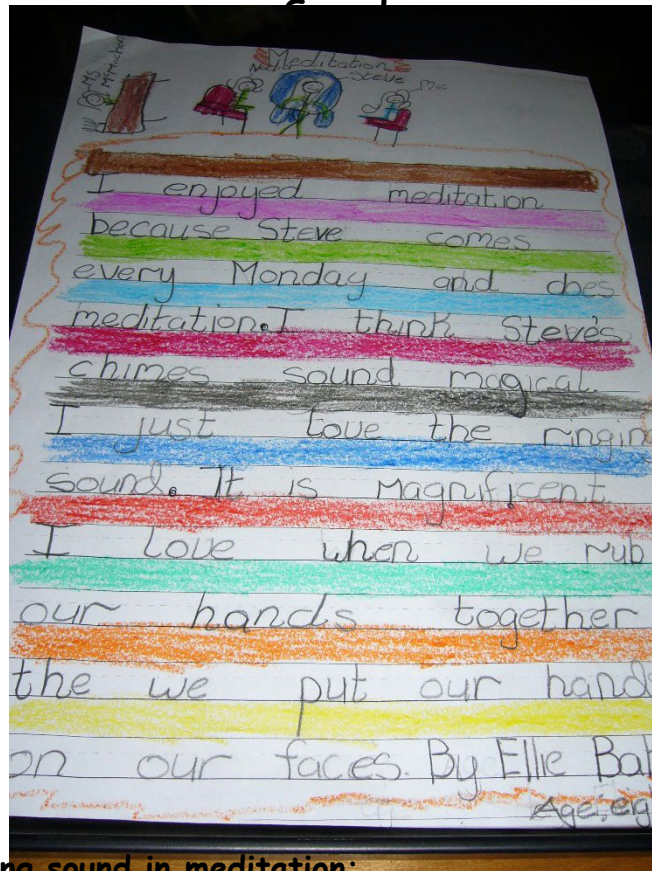 Meditation
MS
McMahon
Steve
Me
I enjoyed meditation
because Steve comes
every Monday and does
meditation. I think Steve's
chimes sound magical.
I just love the ringing
sound. It is Magnificent.
I love when we rub
our hands together
the we put our hands
on our faces. By Ellie
Age
sound in meditation: